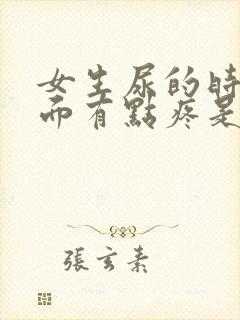 女生尿的時
而有點疼是
張玄素